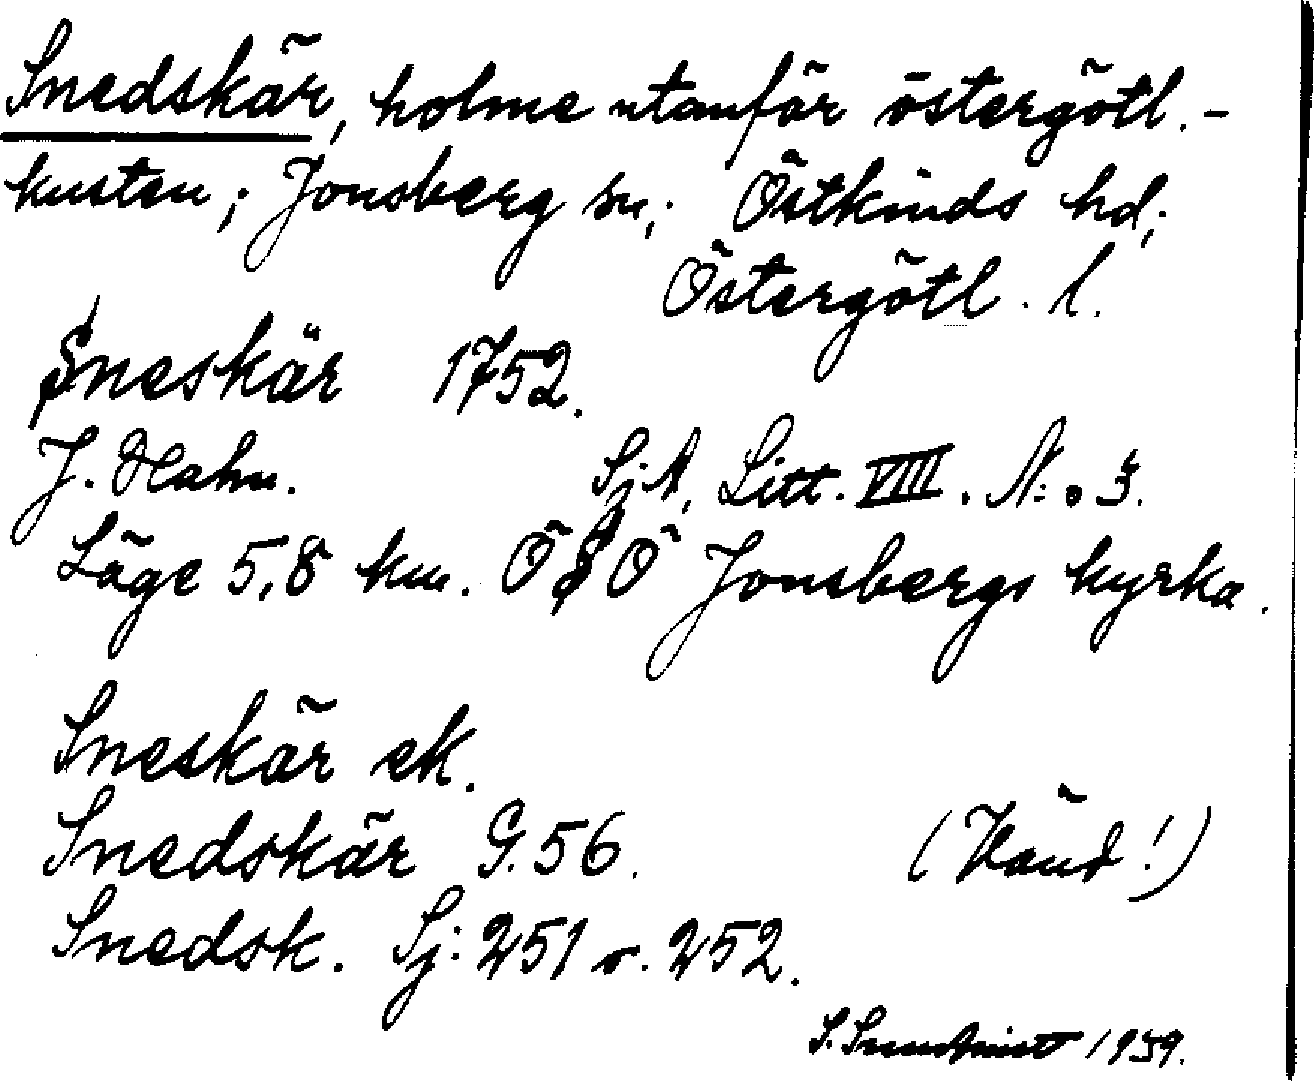 Snedskär, holme utanför östergötl.-
kusten; Jonsberg sn; Östkinds hd;
Östergötl. l.
Sneskär 1752.
J. Hahn. Sj.A. Litt. VIII. N:o 3.
Läge 5,8 km. ÖSÖ Jonsbergs kyrka.
Sneskär ek.
Snedskär G. 56. (Vänd!)
Snedsk. Sj: 251 o. 252.
S. 1939.